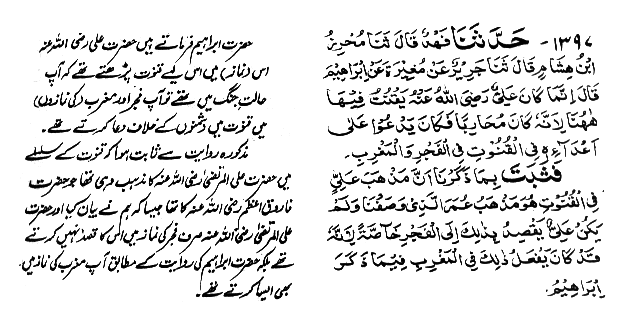 ١٣٩٧- حَدَّثَنَا فَهْدٌ قَالَ ثَنَا مُحْرِزُ
ابْنُ هِشَامٍ قَالَ ثَنَا جَرِيْرٌ عَنْ مُغِيْرَةَ عَنْ اِبْرَاهِيْمَ
قَالَ اِنَّمَا كَانَ عَلِيٌّ رَضِيَ اللهُ عَنْهُ يَقْنُتُ فِيْهَا
هٰهُنَا لِاَنَّهٗ كَانَ مُحَارِبًا فَكَانَ يَدْعُوْا عَلٰى
اَعْدَآءِهٖ فِى الْقُنُوْتِ فِى الْفَجْرِ وَالْمَغْرِبِ۔
فَثَبَتَ بِمَا ذَكَرْنَا اَنَّ مَذْهَبَ عَلِيٍّ
فِى الْقُنُوْتِ هُوَ مَذْهَبُ عُمَرَ الَّذِىْ وَصَفْنَا وَلَمْ
يَكُنْ عَلِيٌّ يَقْصِدُ بِذٰلِكَ اِلَى الْفَجْرِ خَاصَّةً لِاَنَّهٗ
قَدْ كَانَ يَفْعَلُ ذٰلِكَ فِى الْمَغْرِبِ فِيْمَا ذَكَرَ
اِبْرَاهِيْمُ۔
حضرت ابراہیم فرماتے ہیں حضرت علی رضی اللہ عنہ
اس (نماز) میں اس لیے قنوت پڑھتے تھے کہ آپ
حالتِ جنگ میں تھے تو آپ فجر اور مغرب (کی نمازوں)
میں قنوت میں دشمنوں کے خلاف دعا کرتے تھے۔
مذکورہ روایت سے ثابت ہوا کہ قنوت کے سلسلے
میں حضرت علی المرتضیٰ رضی اللہ عنہ کا مذہب وہی تھا جو حضرت
فاروق اعظم رضی اللہ عنہ کا تھا جیسا کہ ہم نے بیان کیا اور حضرت
علی المرتضیٰ رضی اللہ عنہ صرف فجر کی نماز میں اس کا قصد نہیں کرتے
تھے بلکہ حضرت ابراہیم کی روایت کے مطابق آپ مغرب کی نماز میں
بھی ایسا کرتے تھے۔